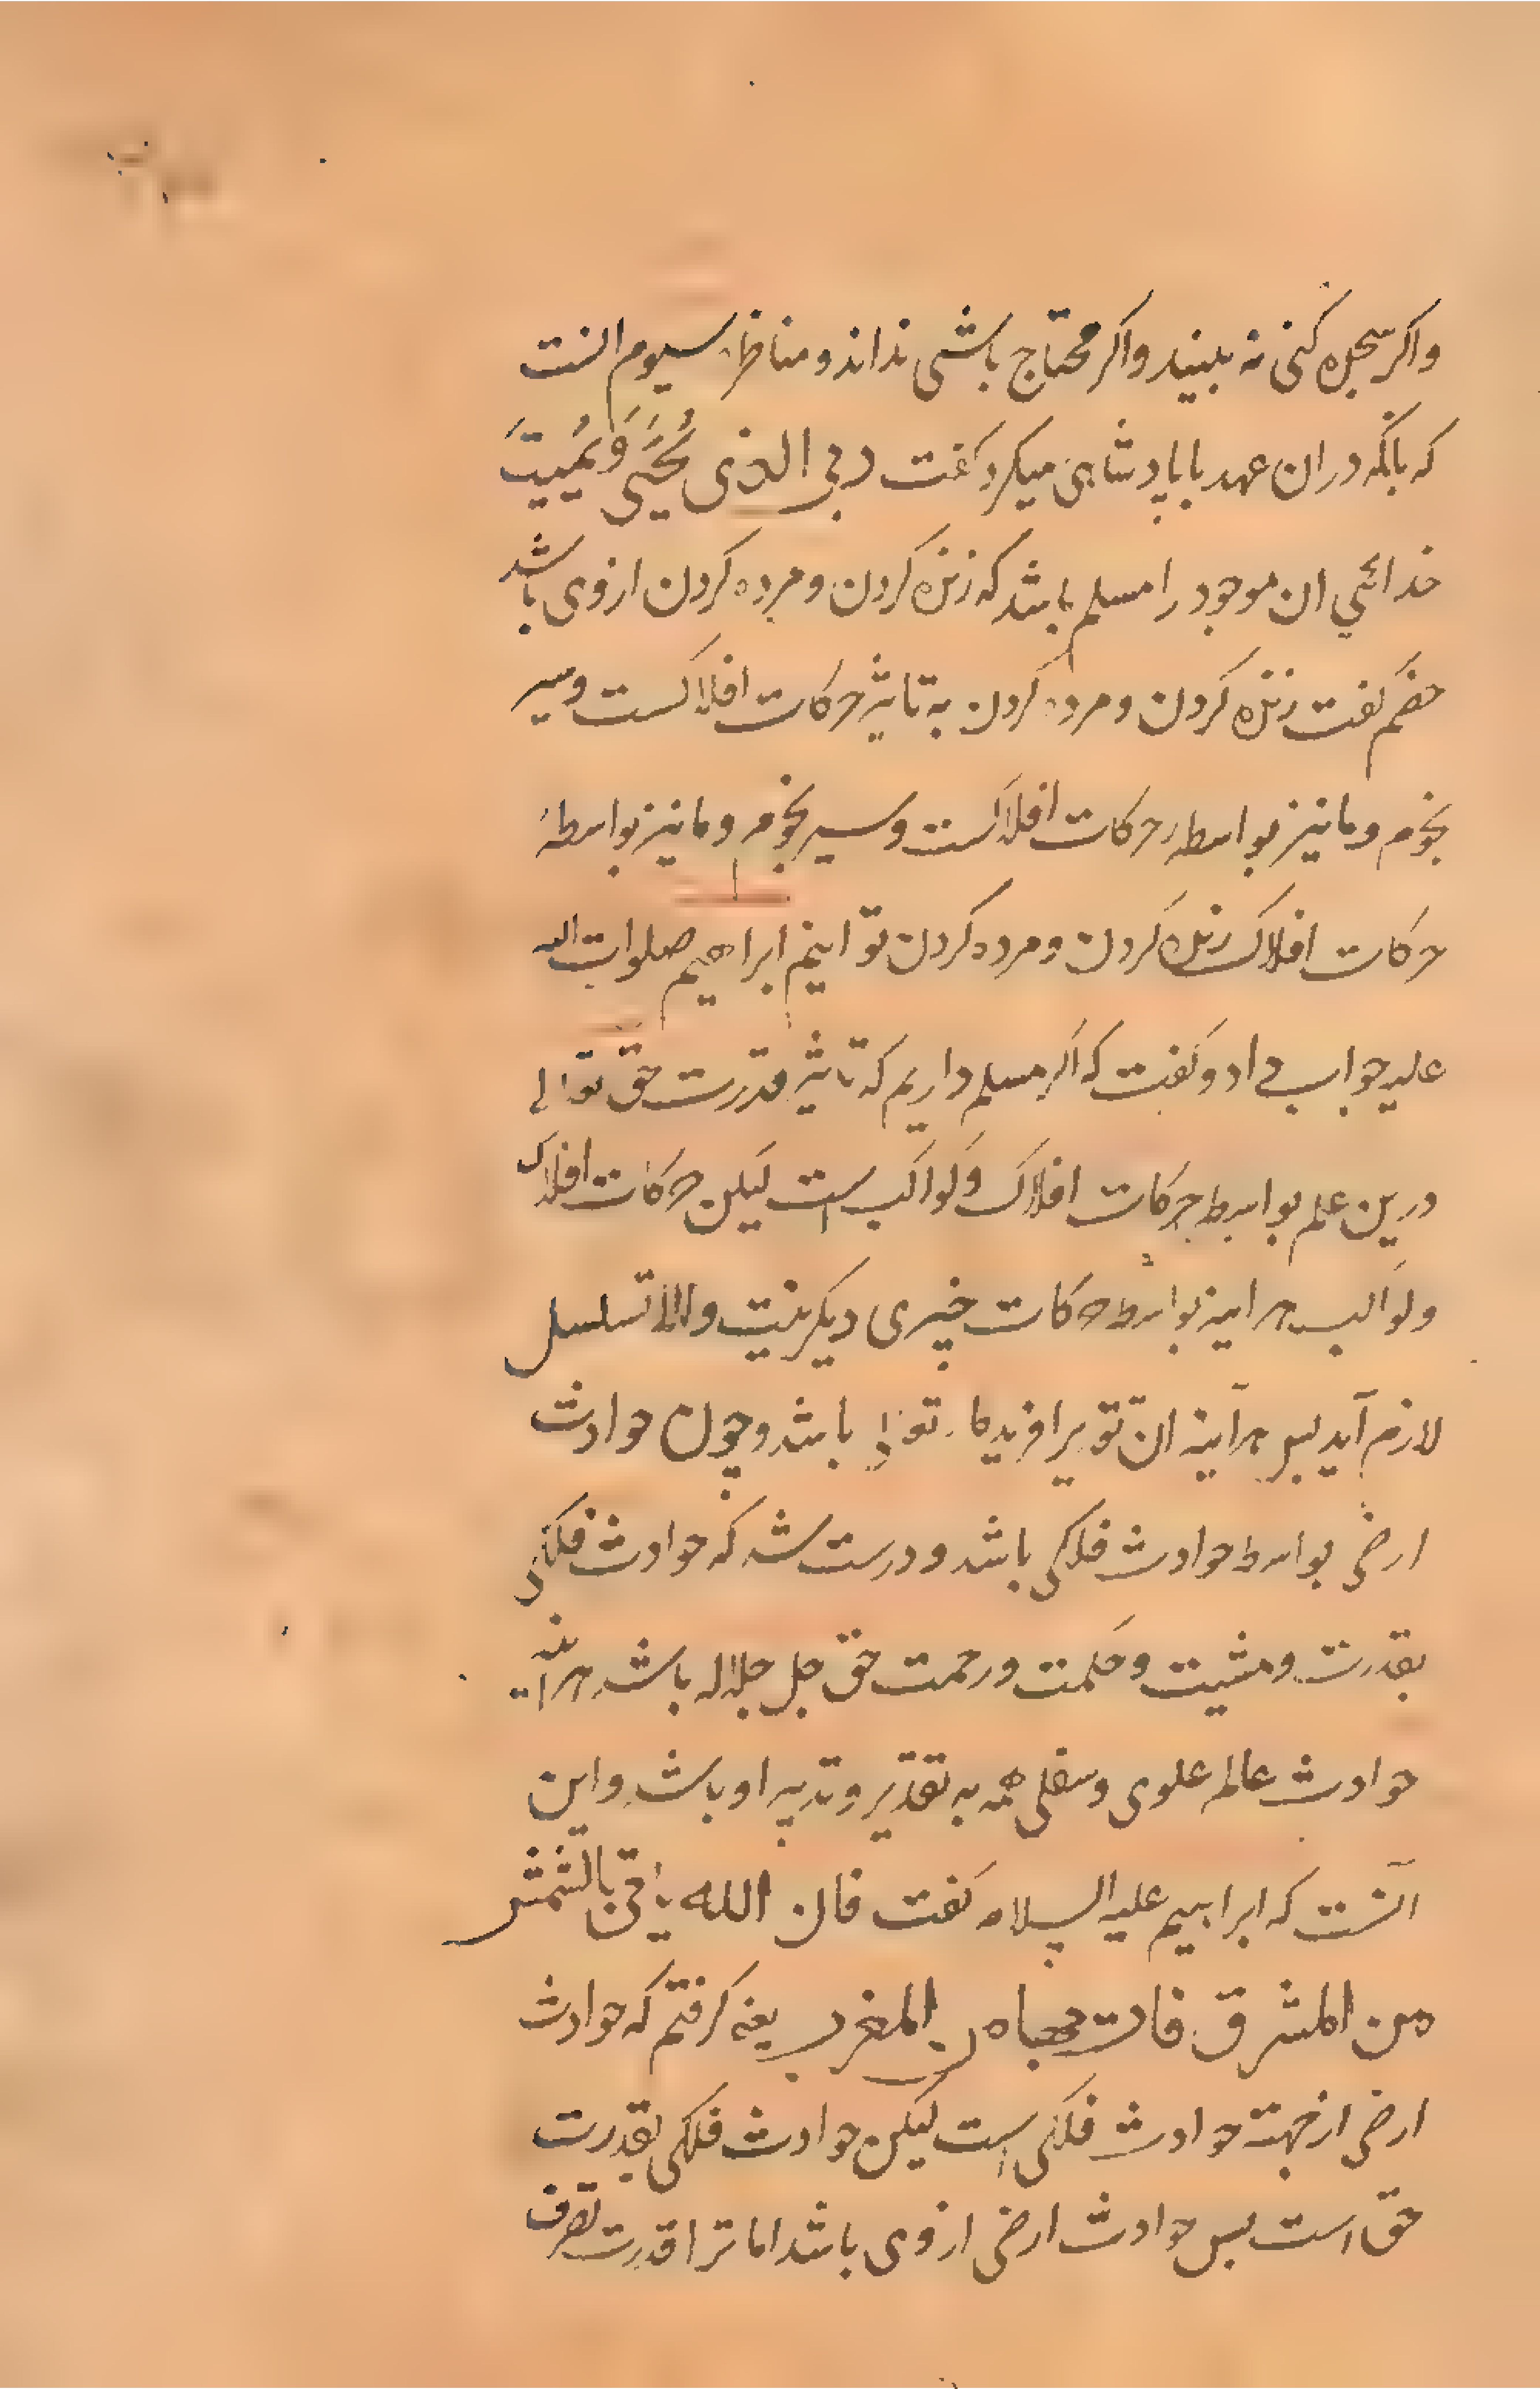 واکر سجده کنی نه بیند واکر محتاج باشی نداند و مناظرهٔ سیوم انست
که بانکه دران عهد با پادشاهی میکرد کفت ربی الذی یُحیَی وَیُمِیتَ
خدائی ان موجود را مسلم باشد که زنده کردن و مرده کردن ازوی باشد
خصم کفت زنده کردن و مرده کردن به تاثیر حرکات افلاکست وسیر
نجوم و ما نیز بواسطهٔ حرکات افلاکست وسیر نجوم و ما نیز بواسطهٔ
حرکات افلاک زنده کردن و مرده کردن توانیم ابراهیم صلوات الله
علیه جواب داد و کفت که اکر مسلم داریم که تاثیر قدرت حق تعالی
درین علم بواسطه حرکات افلاک و کواکب است لیکن حرکات افلاک
و کواکب هراینه بواسطه حرکات چیزی دیکر نیست والا تسلسل
لازم آید پس هرآینه ان تقدیر افریدکار تعالی باشد و چون حوادث
ارضی بواسطه حوادث فلکی باشد و درست شد که حوادث فلکی
بقدرت و مشیت و حکمت و رحمت حق جل جلاله باشد هراینه
حوادث عالم علوی و سفلی همه به تقدیر و تدبیر او باشد و این
آنست که ابراهیم علیه السلام کفت فان الله یاتی بالشمس
من المشرق فات بها من المغرب یعنی کرفتم که حوادث
ارضی از جهة حوادث فلکی است لیکن حوادث فلکی بقدرت
حق است پس حوادث ارضی ازوی باشد اما ترا قدرت تصرف